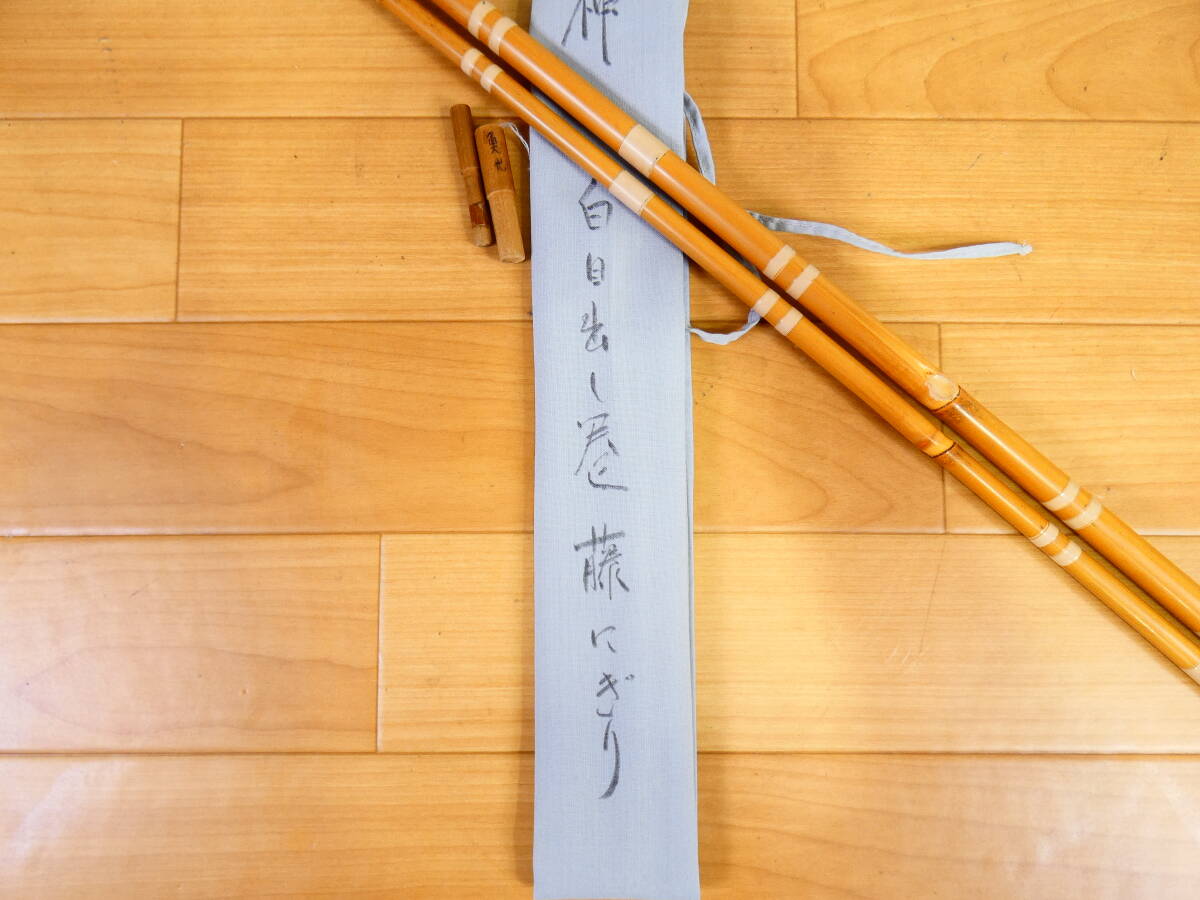 白目出し巻 藤にぎり